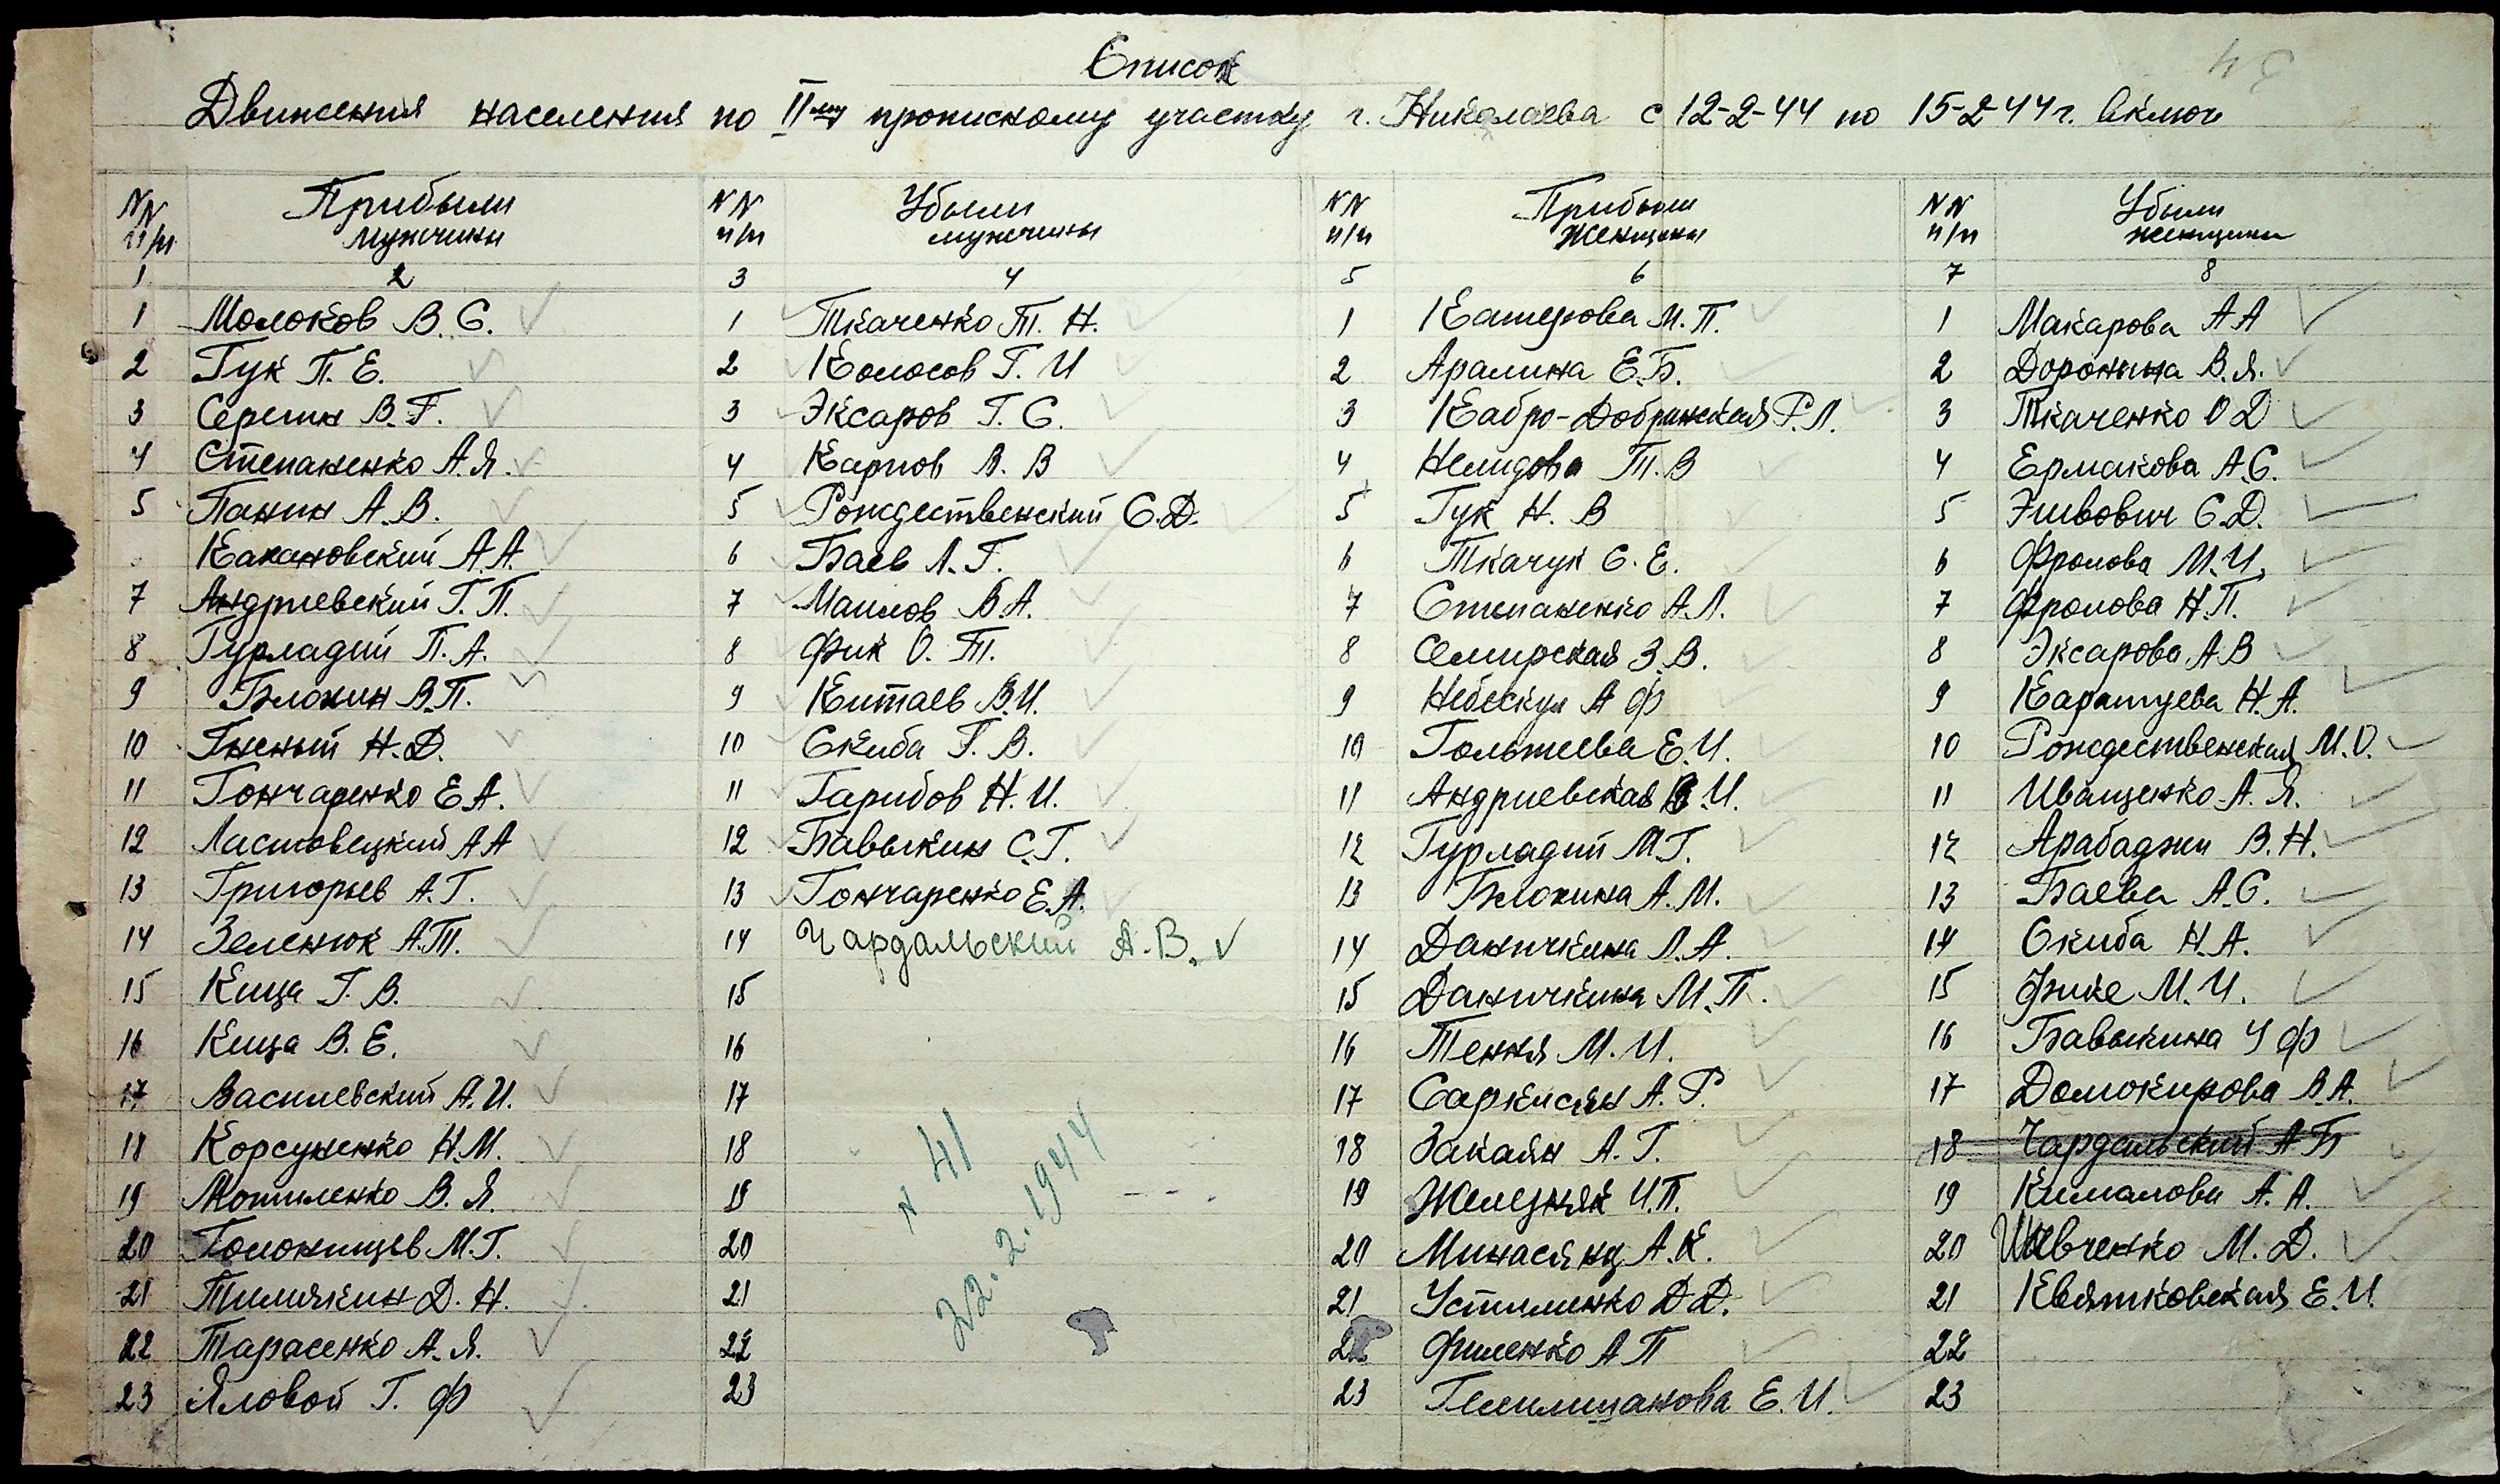 34
Список
Движения населения по IIму пропискому участку г. Николаева с 12-2-44 по 15-2-44 г. включ
NN п/п Прибыли мужчины NN п/п Убыли мужчины NN п/п Прибыли женщины NN п/п Убыли женщины
1 2 3 4 5 6 7 8
1 Молоков В.С. 1 Ткаченко Т.Н. 1 Катерова М.П. 1 Макарова А А
2 Гук П.Е. 2 Колосов Г.И 2 Аралина Е.Б. 2 Доронина В.Я.
3 Серегин В.Г. 3 Эксаров Г.С. 3 Кабро-Добринская Р.Л. 3 Ткаченко О Д
4 Степаненко А.Я. 4 Карпов В.В 4 Нелидова Т.В 4 Ермакова А.С.
5 Панин А.В. 5 Рождественский С.Д. 5 Гук Н.В 5 С.Д.
Кахановский А.А. 6 Баев Л.Г. 6 Ткачук С.Е. 6 Фролова М.И.
7 Андриевский Г.П. 7 Маилов В.А. 7 Степаненко А.Л. 7 Фролова Н.П.
8 Гурладий П.А. 8 Фик О.Т. 8 Семирская З.В. 8 Эксарова А.В
9 Блохин В.П. 9 Китаев В.И. 9 А Ф 9 Н.А.
10 Гненый Н.Д. 10 Скиба Г.В. 10 Е.И. 10 Рождественская М.О.
11 Гончаренко Е.А. 11 Гарибов Н.И. 11 Андриевская В.И. 11 Иващенко А.Я.
12 Ластовецкий А А 12 Бавыкин С.Г. 12 Гурладий М.Г. 12 Арабаджи В.Н.
13 Григорьев А.Г. 13 Гончаренко Е.А. 13 Блохина А.М. 13 Баева А.С.
14 Зеленюк А.Т. 14 Чардальский А.В. 14 Даничкина Л.А. 14 Скиба Н.А.
15 Кица Г.В. 15 15 Даничкина М.П. 15 Фике М.И.
16 Кица В.Е. 16 16 Тення М.И. 16 Бавыкина У Ф
17 Василевский А.И. 17 17 Саркисян А.Р. 17 Домокирова В.А.
18 Корсуненко Н.М. 18 18 Закаян А.Г. 18 Чардальский А Б
19 Мотиленко В.Я. 19 19 Железняк И.П. 19 Кималова А.А.
20 Голонищев М.Г. 20 20 Минасянц А.К. 20 Шевченко М.Д.
21 Тимичкин Д.Н. 21 21 Устименко Д.Д. 21 Квятковская Е.И.
22 Тарасенко А.Я. 22 22 Филенко А П 22
23 Яловой Г.Ф 23 23 Е.И. 23
N 41
22.2.1944